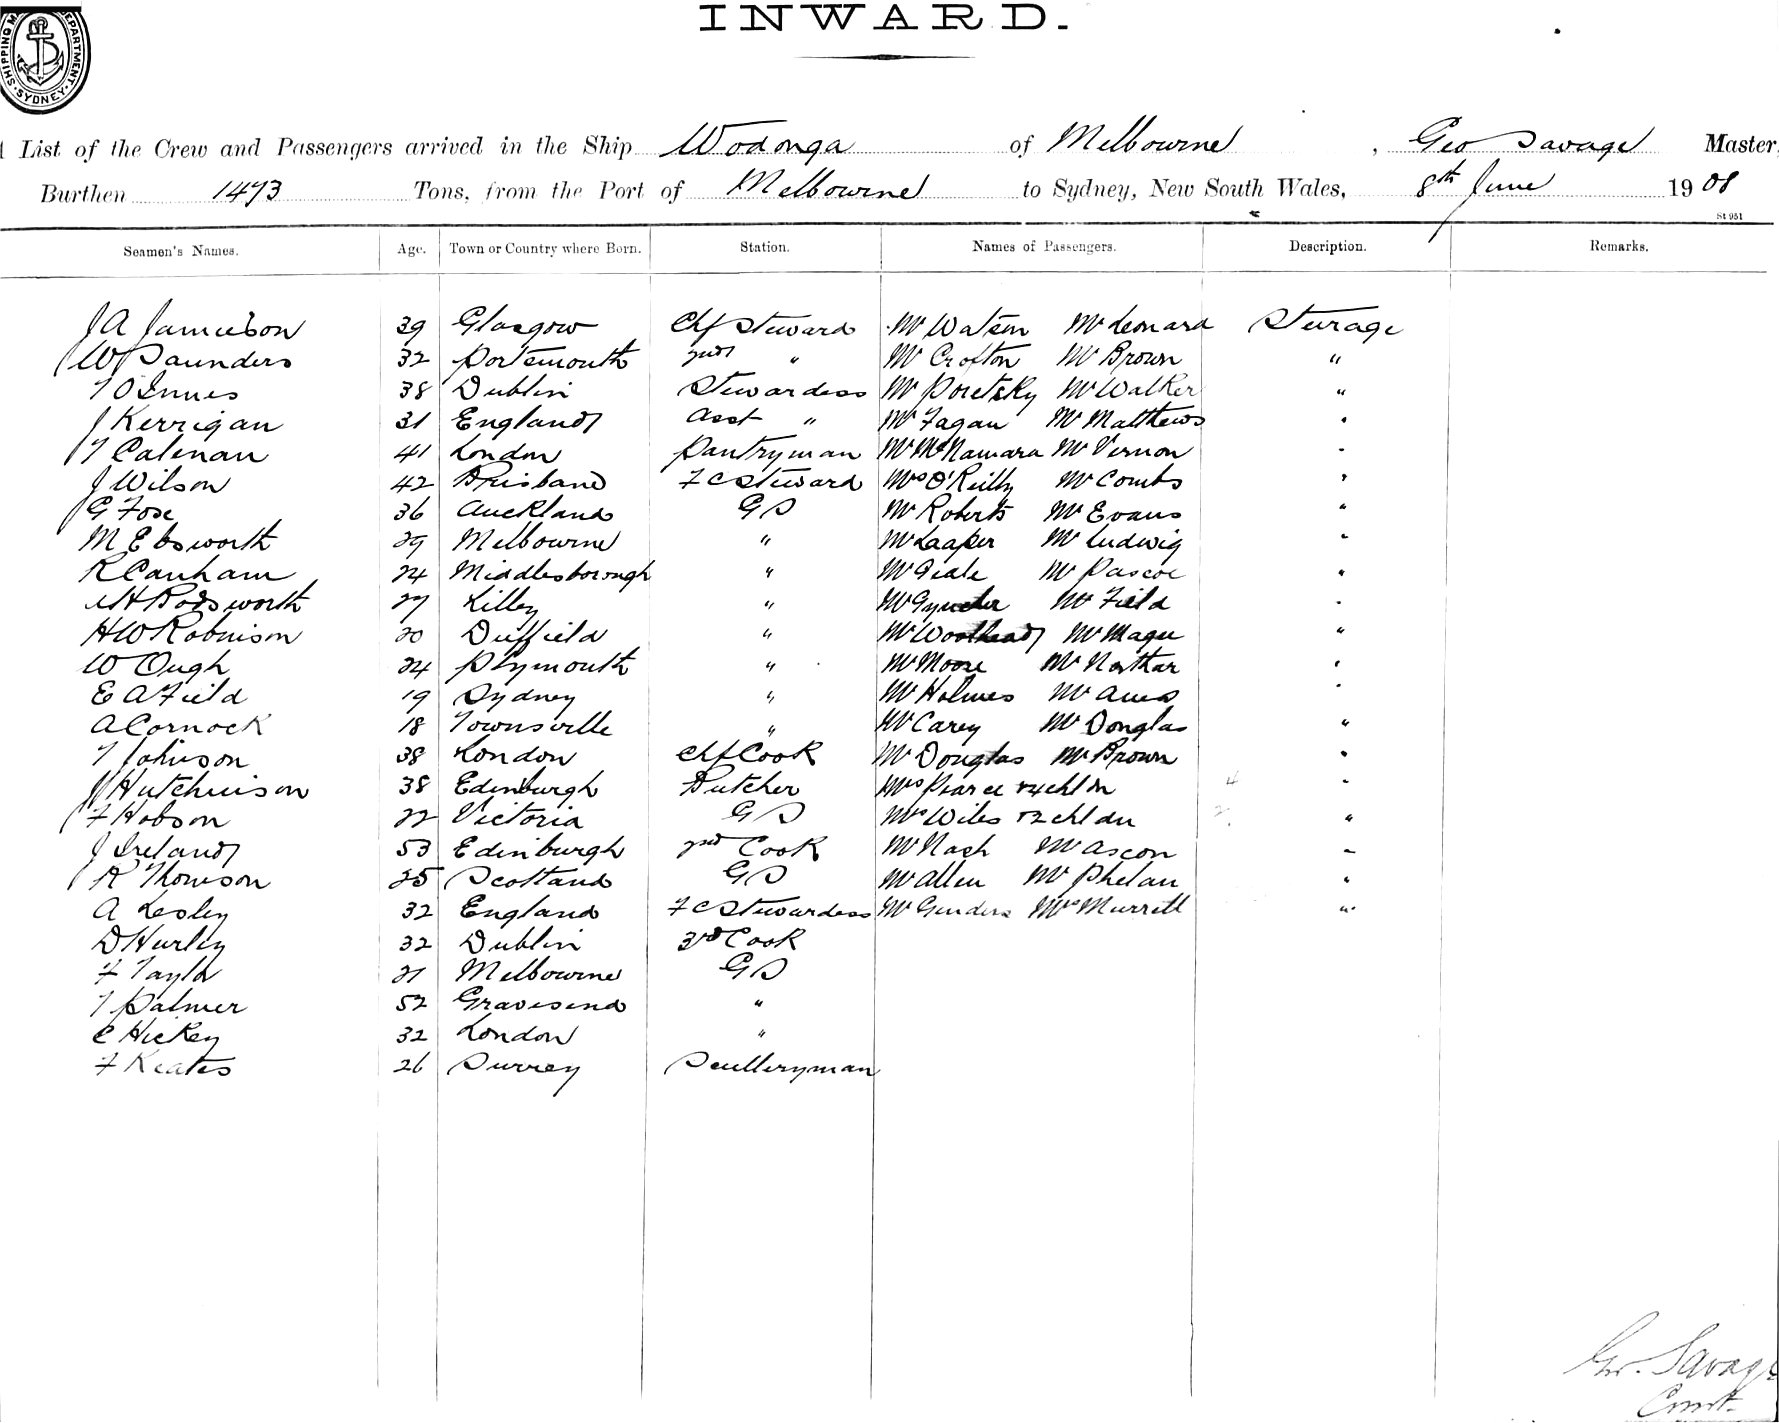 INWARD.
SHIPPING M DEPARTMENT. SYDNEY
List of the Crew and Passengers arrived in the Ship Wodonga of Melbourne, Geo Savage Master
Burthen 1473 Tons, from the Port of Melbourne to Sydney, New South Wales, 8th June 1908
St 951
Seamen's Names. Age. Town or Country where Born. Station. Names of Passengers. Description. Remarks.
J A Jamieson 39 Glasgow Chf Steward Mr Watson Mr Leonard Sturage
W Saunders 32 Portsmouth 2nd " Mr Crofton Mr Brown "
T O Innes 38 Dublin Stewardess Mr Poretsky Mr Walker "
J Kerrigan 31 England Asst " Mr Fagan Mr Matthews "
T Calenan 41 London Pantryman Mr McNamara Mr Vernon "
J Wilson 42 Brisbane F C Steward Mrs O'Reilly Mr Combs "
G Fox 36 Auckland G S Mr Roberts Mr Evans "
M Ebsworth 29 Melbourne " Mr Laaper Mr Ludwig "
R Canham 24 Middlesborough " Mr Geale Mr Pascoe "
Bodsworth 27 Killey " Mr Mr Field "
H W Robinson 20 Duffield " Mr Woolhead Mr Magee "
W Ough 24 Plymouth " Mr Moore Mr "
E A Field 19 Sydney " Mr Holmes Mr Ames "
A Cornock 18 Townsville " Mr Carey Mr Douglas "
T Johnson 38 London Chf Cook Mr Douglas Mr Brown "
J Hutchison 38 Edinburgh Butcher Mrs Pearce & 4 chldn 4 "
F Hobson 22 Victoria G S Mrs Wiles & 2 chldn 2 "
J Ireland 53 Edinburgh 2nd Cook Mr Nash Mr Ascon "
R Thomson 25 Scotland G S Mr Allen Mr Phelan "
A Lesley 32 England F C Stewardess Mr Genders Mrs Murrell "
D Hurley 32 Dublin 3rd Cook
F Taylor 21 Melbourne G S
T Palmer 52 Gravesend "
C Hickey 32 London "
F Keates 26 Surrey Sculleryman
Geo. Savage